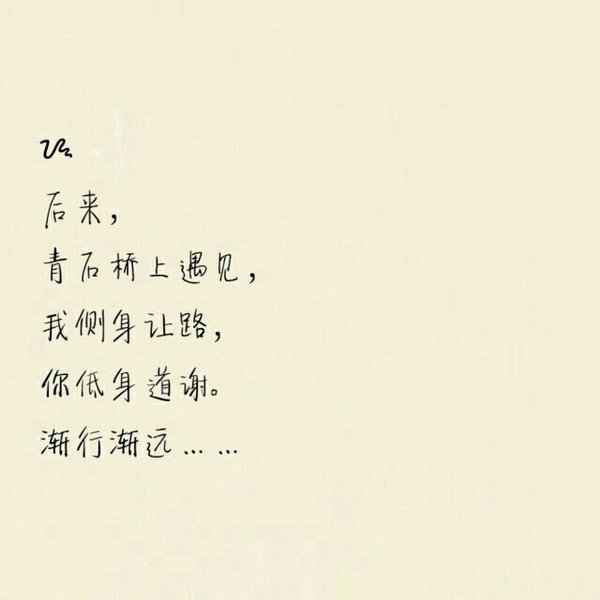 后来，
青石桥上遇见，
我侧身让路，
你低身道谢。
渐行渐远……